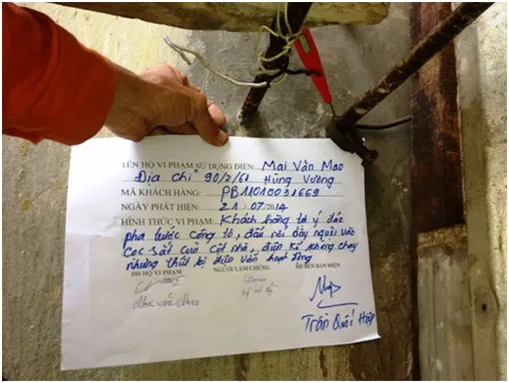 TÊN HỘ VI PHẠM SỬ DỤNG ĐIỆN: Mai Văn Mao
Địa chỉ 90/2/61 Hùng Vương
MÃ KHÁCH HÀNG: PB11010031669
NGÀY PHÁT HIỆN: 21/07/2014
HÌNH THỨC VI PHẠM: Khách hàng tự ý đào
phá trước công tơ, đấu nối dây nguội vào
cọc sắt của cột nhà, điện kế không chạy
nhưng thiết bị điện vẫn hoạt động
ĐD HỘ VI PHẠM NGƯỜI LÀM CHỨNG ĐD BÊN BÁN ĐIỆN
Trần Quốc Hiệp